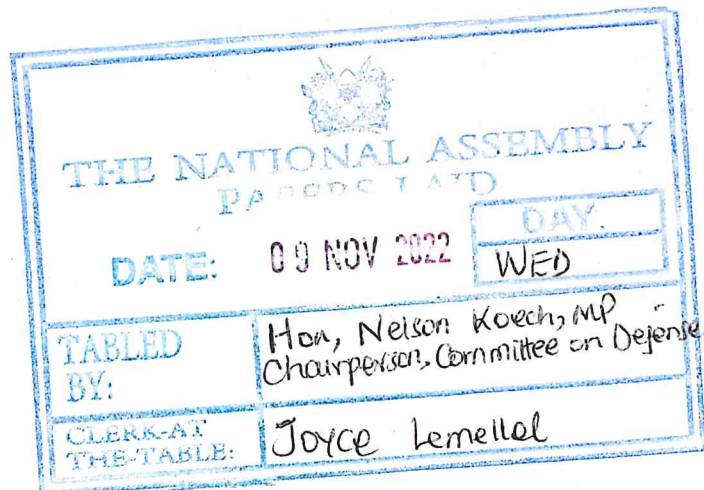 THE NATIONAL ASSEMBLY
PAPERS LAID
DATE: 09 NOV 2022
DAY.
WED
TABLED BY:
Hon, Nelson Koech, MP
Chairperson, Committee on Defense
CLERK-AT THE-TABLE:
Joyce Lemellel